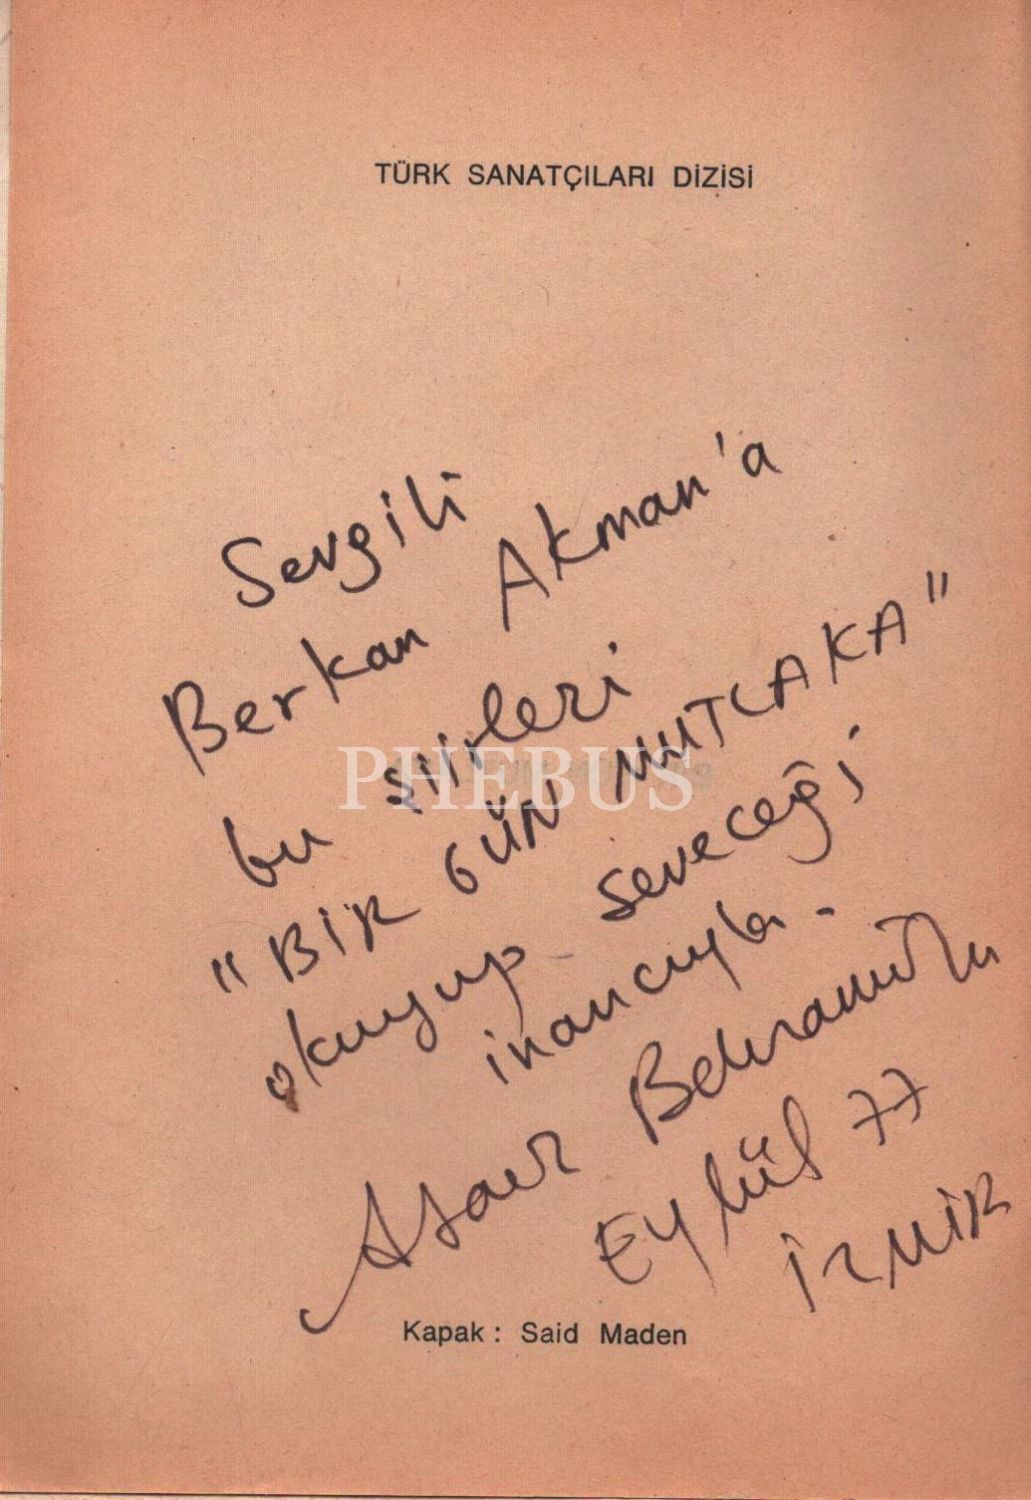 TÜRK SANATÇILARI DİZİSİ
Sevgili
Berkan Akman'a
bu şiirleri
"BİR GÜN MUTLAKA"
okuyup seveceği
inancıyla.
Ataol Behramoğlu
Eylül 77
İZMİR
PHEBUS
Kapak : Said Maden